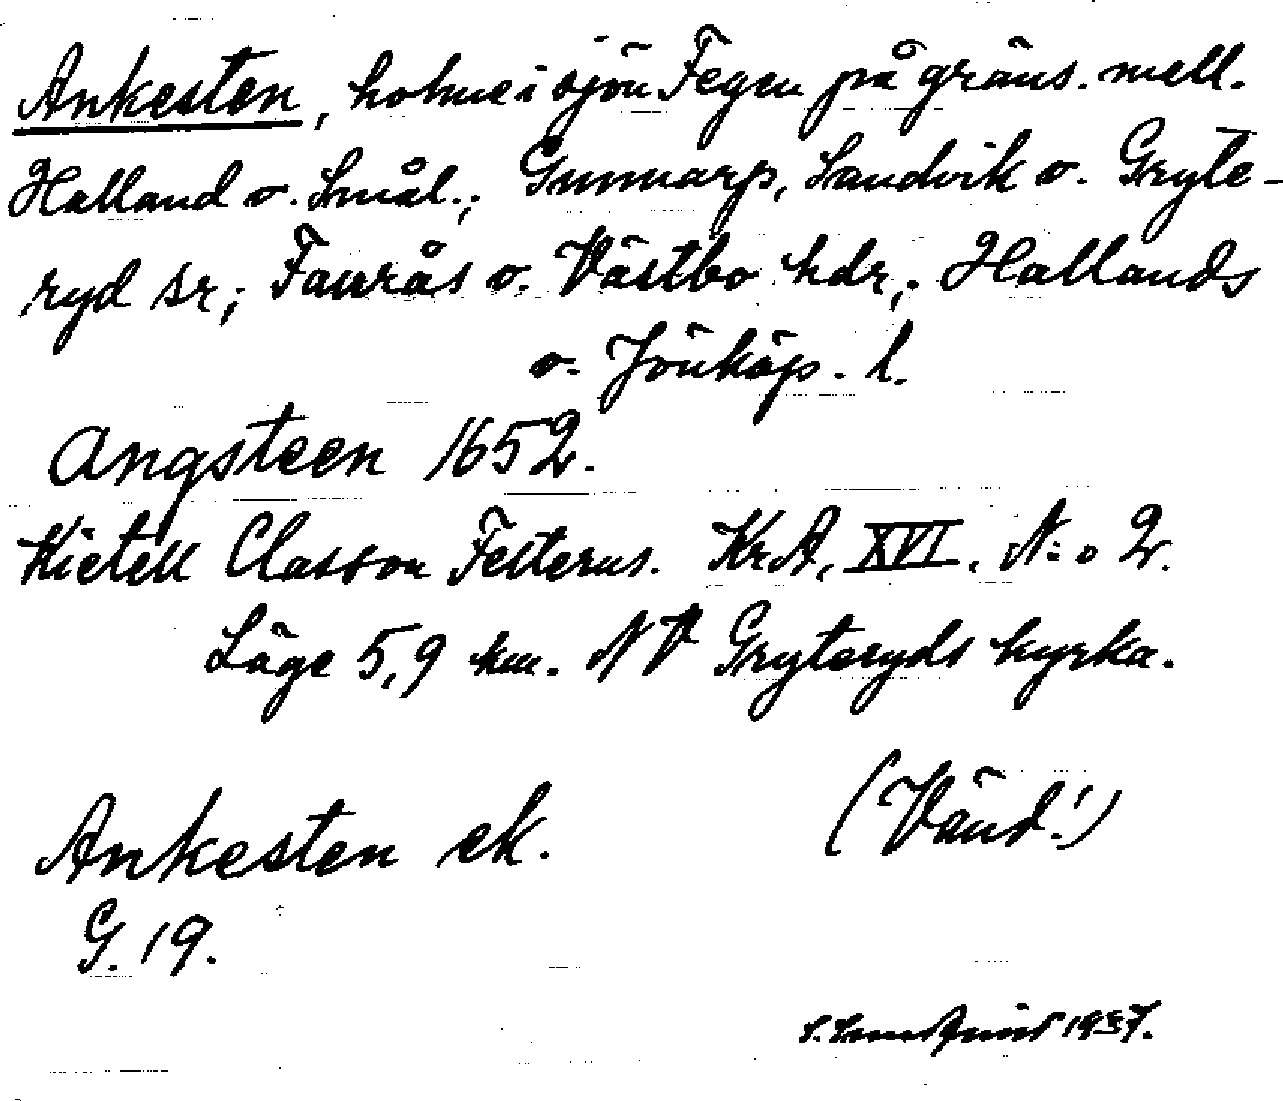 Ankesten, holme i sjön Fegen på gräns. mell.
Halland o. Smål.; Gunnarp, Sandvik o. Gryte-
ryd sr; Faurås o. Västbo hdr; Hallands
o. Jönköp. l.
Angsteen 1652.
Kietell Classon Felterus. KrA, XVI. N:o 2.
Läge 5,9 km. NV Gryteryds kyrka.
(Vänd!)
Ankesten ek.
G. 19.
1937.